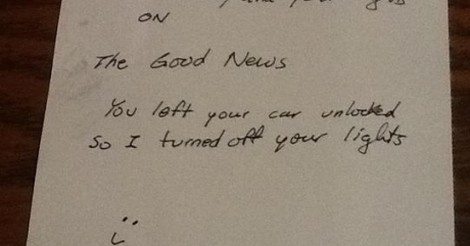 your lights
ON
The Good News
You left your car unlocked
so I turned off your lights